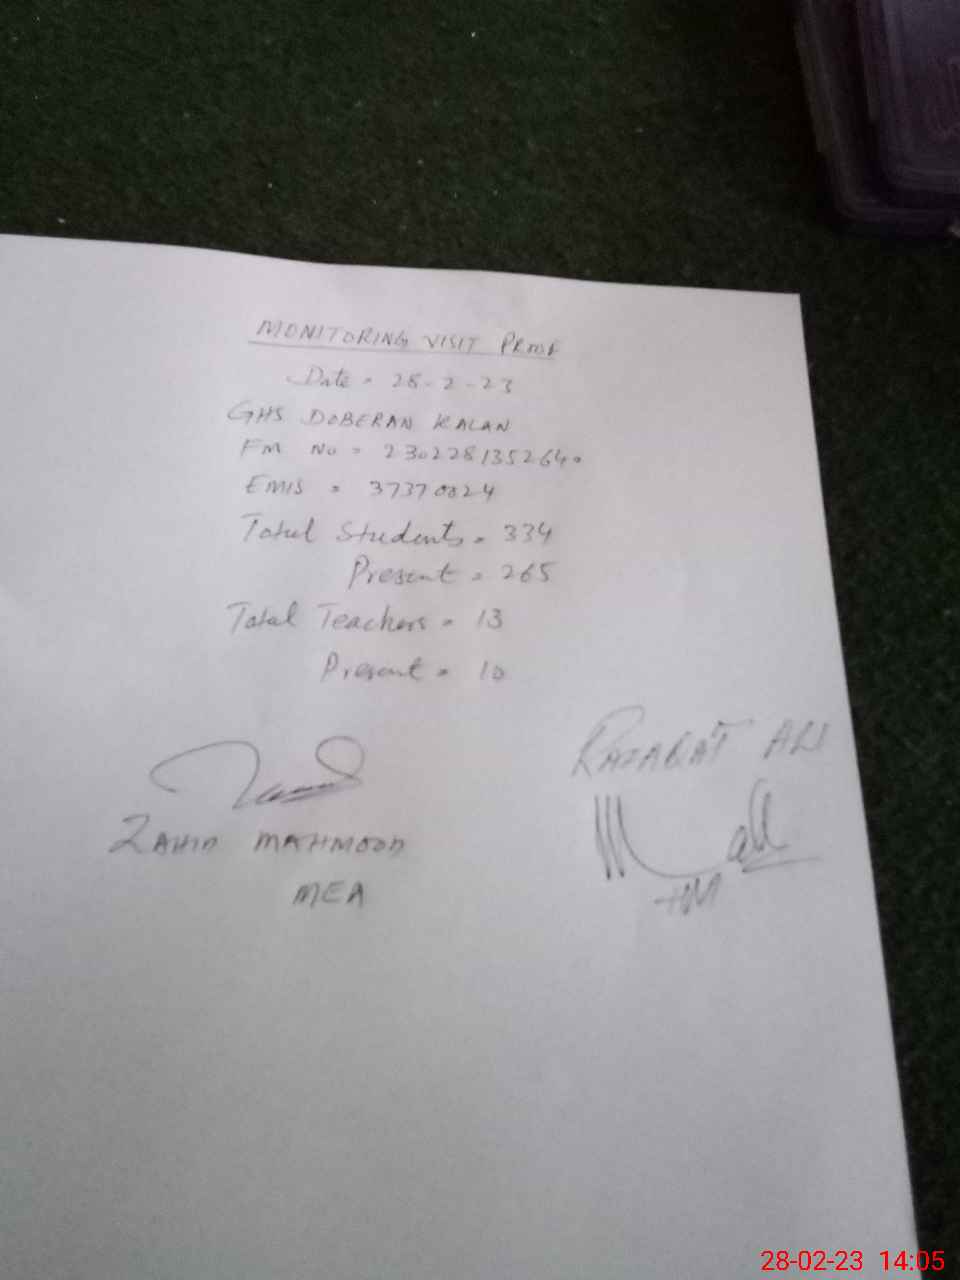 MONITORING VISIT PROOF
Date = 28-2-23
GHS DOBERAN KALAN
FM No = 2302281352640
EMIS = 37370024
Total Students = 334
Present = 265
Total Teachers = 13
Present = 10
ZAHID MAHMOOD
MEA
ALI
HM
28-02-23 14:05